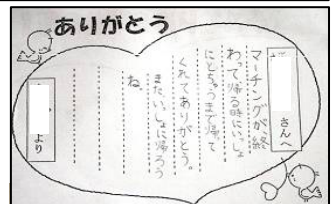 ありがとう
さんへ
マーチングが、終
わって帰る時にいっしょ
にとちゅうまで帰って
くれてありがとう。
またいっしょに帰ろう
ね。
より